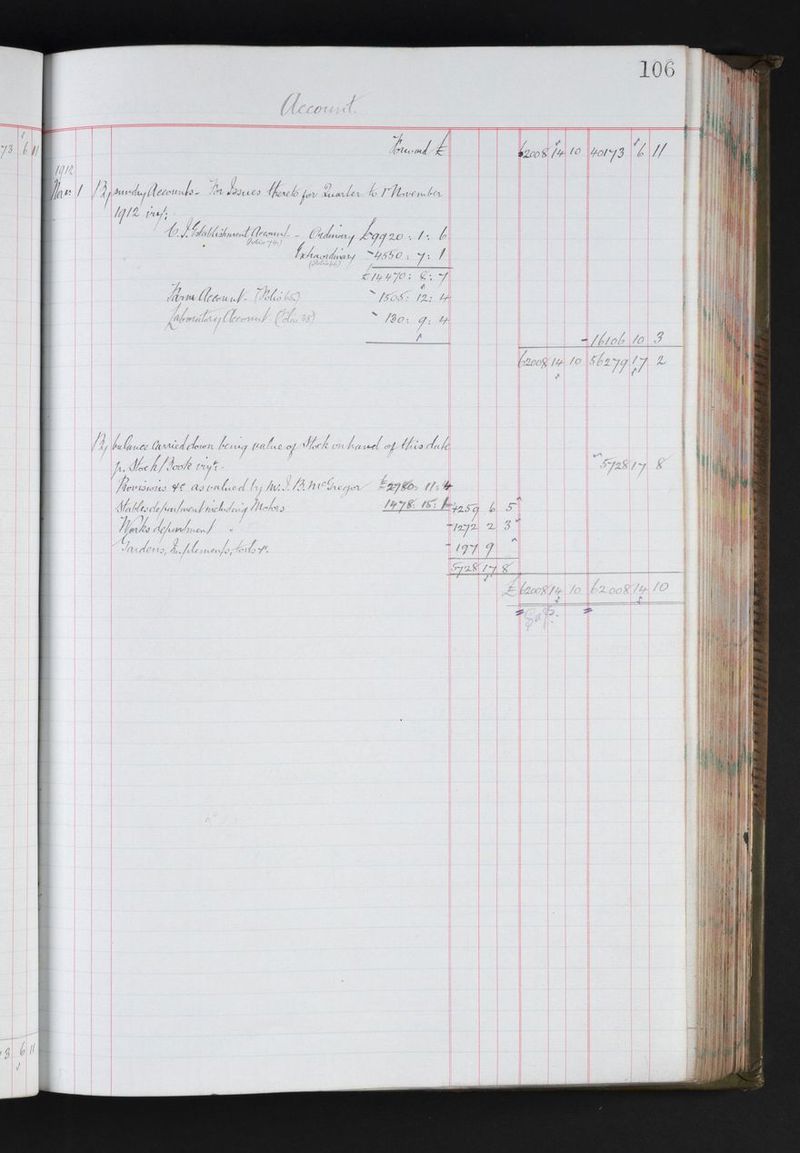 106
Account.
73 6 11
Forward £ 62008 14 10 40173 6 11
1912
Nov 1 By sundry Accounts - For Issues thereto for Quarter to 1st November
1912 viz:
C. I. Establishment Account - Ordinary £9920 : 1 : 6
(Folio 74)
Extraordinary 4550 : 7 : 1
£14470 : 8 : 7
Farm Account - (Folio) 1505 : 12 : 4
Laboratory Account (Folio 28) 130 : 9 : 4
16106 10 3
62008 14 10 56279 17 2
By balance carried down being value of Stock on hand at this date
pr. Stock Book viz:- 5728 17 8
Provisions &c as valued by Mr. J. B. McGregor £2780 : 11 : 4
Stables department including Motors 1478 : 15 : 1 4259 6 5
Works department " 1272 2 3
Gardens, Implements, tools &c. 197 9
5728 17 8
£ 62008 14 10 62008 14 10
3 6 11